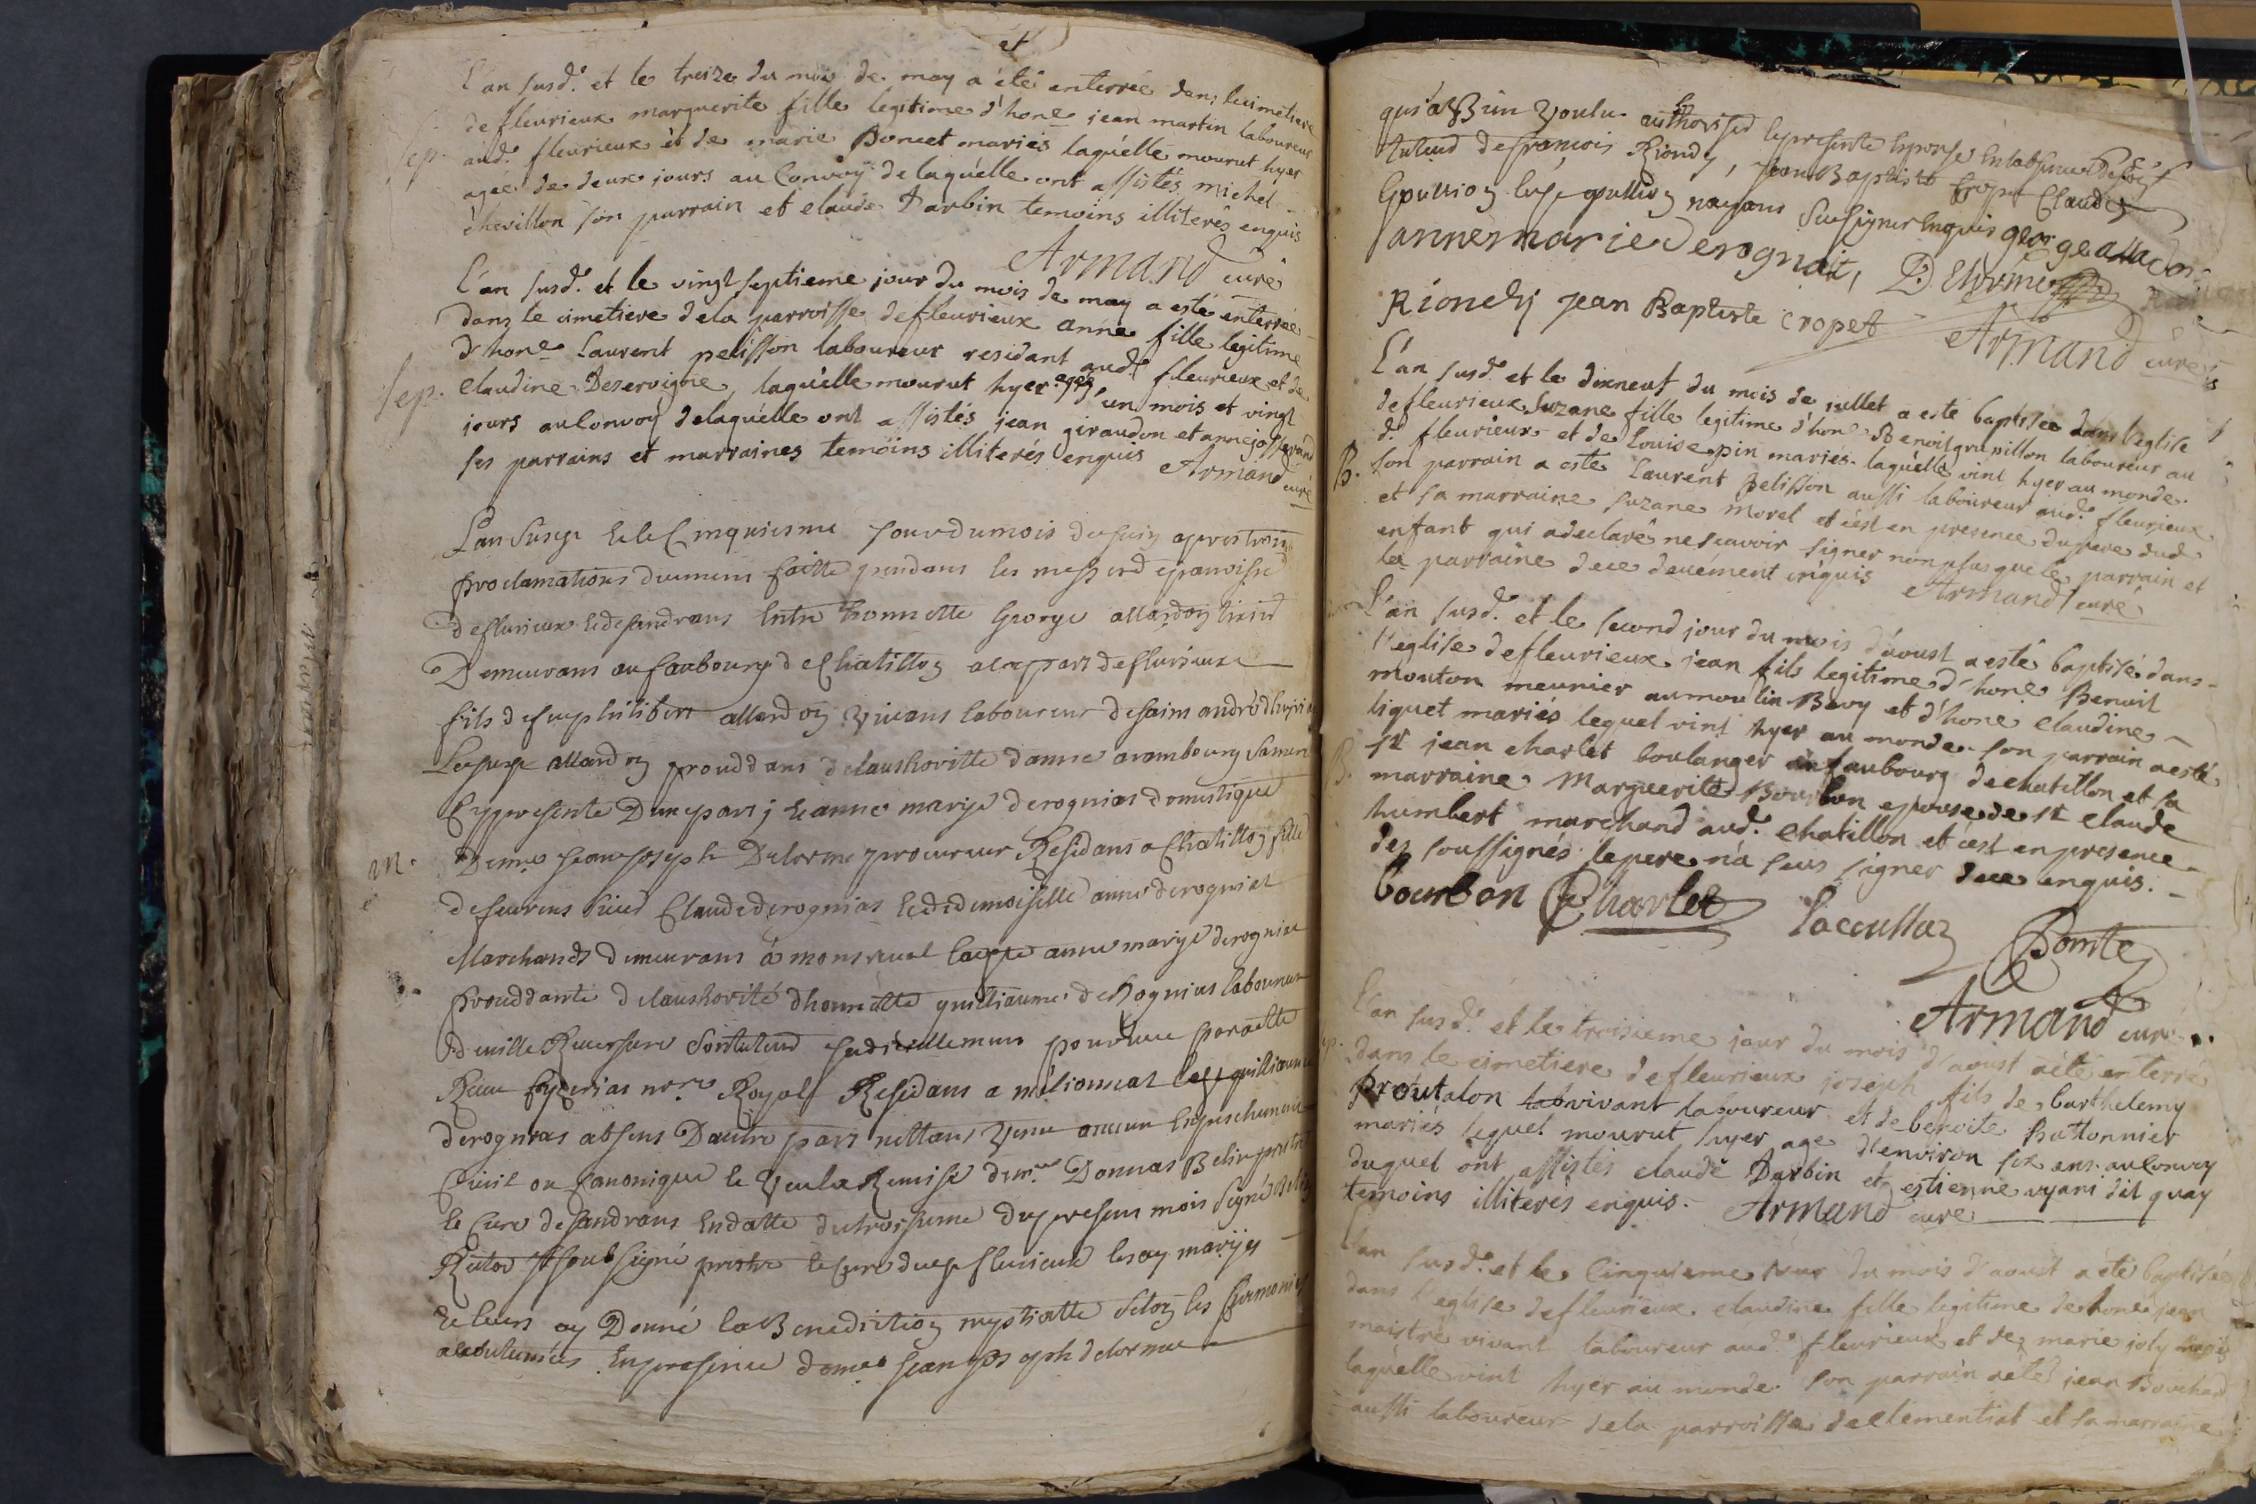 L'an susd. et le treize du mois de may a été enterrée dans le cimetiere
de fleurieux marguerite fille legitime d'hone jean martin laboureur
Sep.
aud. fleurieux et de marie Poncet mariés laquélle mourut hyer
agée de deux jours au Convoÿ de laquélle ont assistés michel
chevillon son parrain et claude Darbin temoins illiterés enquis
Armand curé
L'an susd. et le vingt septieme jour du mois de may a esté enterrée
dans le cimetiere dela parroisse de fleurieux anne fille legitime
d'hone Laurent pelisson laboureur residant aud. fleurieux et de
Sep.
Claudine Deservigne, laquélle mourut hyer agée un mois et vingt
jours au Convoÿ delaquélle ont assistés jean giraudon et anne josserand
ses parrains et marraines temoins illiterés enquis Armand curé
Lan Susd. et le Cinquiesme Jour du mois de Juin apres trois
proclamations deument faitte pendans les messes de paroisse
de flurieux et de sandrans Entre honnette George allardon
Demeurans au faubourg de Chatillon a la part de flurieux
fils de feu philibert allardon Vivans laboureur de saint andré
Le susd. allardon proceddans de lauthoritte danne arambourg sa mere
Cy presente Dune part; et anne marye derognias domestique
m.
De mr. Jean Joseph Delorme procureur Residans a Chatillon fille
de feu sieur Claude derognias et de demoiselle anne derogniat
Marchands demeurans à monreval laditte anne marye derognias
proceddante de lauthorité dhonnette guilliaume derognias laboureur
Son tuteur pourvue par acte
nore. Royal Residans a
derognias absens Dautre part netans Venu aucun Enpeschement
Civil ou Canonique et Veu la Remise de mr. Donnas Belin prestre
et Curé de sandrans En datte du troisieme du present mois Signé Belin
Je soubsigné prestre et Curé dud. flurieux les ay mariés
et leurs ay Donné la Benediction nuptialle selon les Ceremonies
accoutumées En presence de mre Jean Joseph delorme
qui a Bien Voulu authoriser la presente Epouse En labsence
tuteur de francois Riondy, Jean Baptiste Cropet Claude
Gpullion nayans Sceu signer Enquis george allardon
anne marie Derogniat, Delorme
Riondy jean Baptiste cropet Armand curé
L'an susd. et le dixneuf du mois de juillet a esté baptisée dans l'eglise
de fleurieux Suzane fille legitime d'hone Benoit grupillon laboureur au
d. fleurieux et de Louise pin mariés laquélle vint hyer au monde
B.
son parrain a esté Laurent Pelisson aussi laboureur aud. fleurieux
et sa marraine suzane Morel et c'est en presence du pere dud.
enfant qui a declaré ne scavoir signer non plus que le parrain et
la parraine de ce deuement enquis Armand curé
L'an susd. et le second jour du mois d'aoust a esté baptisé dans
l'eglise de fleurieux jean fils legitime d'hone Benoit
mouton meunier au moulin Bovy et d'hone claudine
liquet mariés lequel vint hyer au monde son parrain a esté
B.
Sr. jean charlet boulanger au faubourg de chatillon et sa
marraine Marguerite Bourbon epouse de Sr. claude
humbert marchand aud. Chatillon et c'est en presence
des soussignés le pere n'a sceu signer de ce enquis.
bourbon Charlet Comte
Armand curé
L'an susd. et le troisieme jour du mois d'aoust a été enterré
dans le cimetiere de fleurieux joseph fils de barthelemy
proutalon vivant laboureur et de benoite Buttonnier
mariés lequel mourut hyer agé d'environ six ans au Convoy
duquel ont assistés claude Darbin et estienne uyani dit quay
temoins illiterés enquis. Armand curé
L'an susd. et le Cinquieme jour du mois d'aoust a été baptisée
dans l'eglise de fleurieux claudine fille legitime de hone jean
maistre vivant laboureur aud. fleurieux et de marie joly mariés
laquélle vint hyer au monde son parrain a été jean Bouchard
aussi laboureur dela parroisse de clementiat et sa marraine